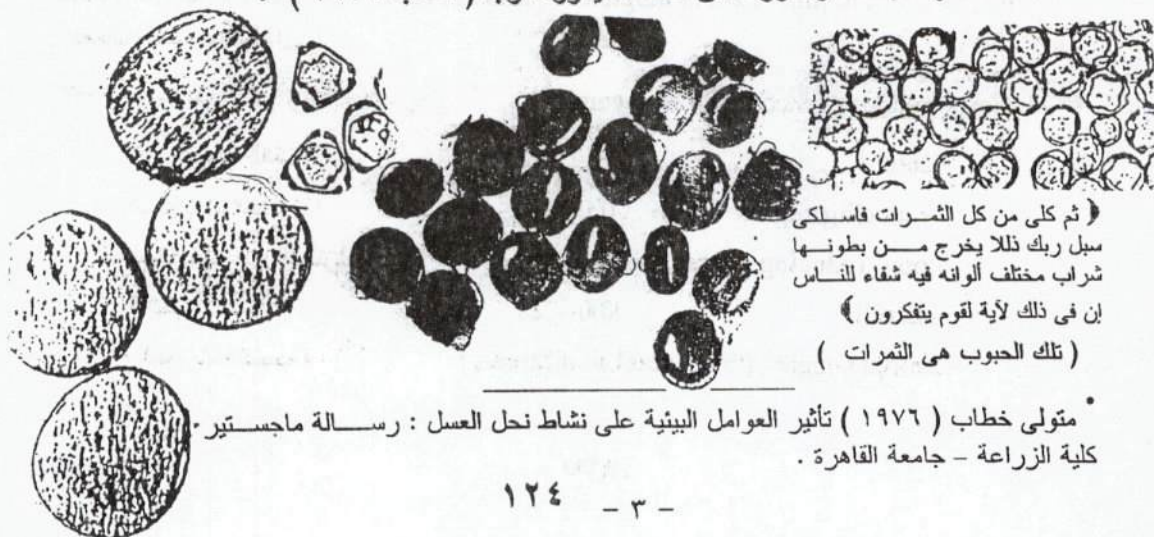 ﴿ ثم كلى من كل الثمرات فاسلكى
سبل ربك ذللا يخرج من بطونها
شراب مختلف ألوانه فيه شفاء للناس
إن فى ذلك لآية لقوم يتفكرون ﴾
( تلك الحبوب هى الثمرات )
* متولى خطاب ( ١٩٧٦ ) تأثير العوامل البيئية على نشاط نحل العسل : رسالة ماجستير .
كلية الزراعة – جامعة القاهرة .
١٢٤ - ٣ -